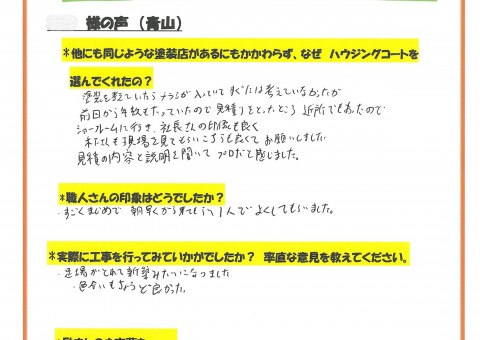 様の声（青山）
＊他にも同じような塗装店があるにもかかわらず、なぜ ハウジングコートを
選んでくれたの？
塗装を考えていたらチラシが入っていてすぐには考えていなかったが
前日から年数もたっていたので見積りをとったところ 近所でもあったので
ショールームに行き、社長さんの印象も良く
又 現場を見てもらいこころも良くて お願いしました。
見積の内容と説明を聞いて プロだと感じました。
＊職人さんの印象はどうでしたか？
・すごくまじめで 朝早くから 1人で よくしてもらいました。
＊実際に工事を行ってみていかがでしたか？ 率直な意見を教えてください。
・足場がとれて新築みたいになりました
・色合いもちょうど良かった。